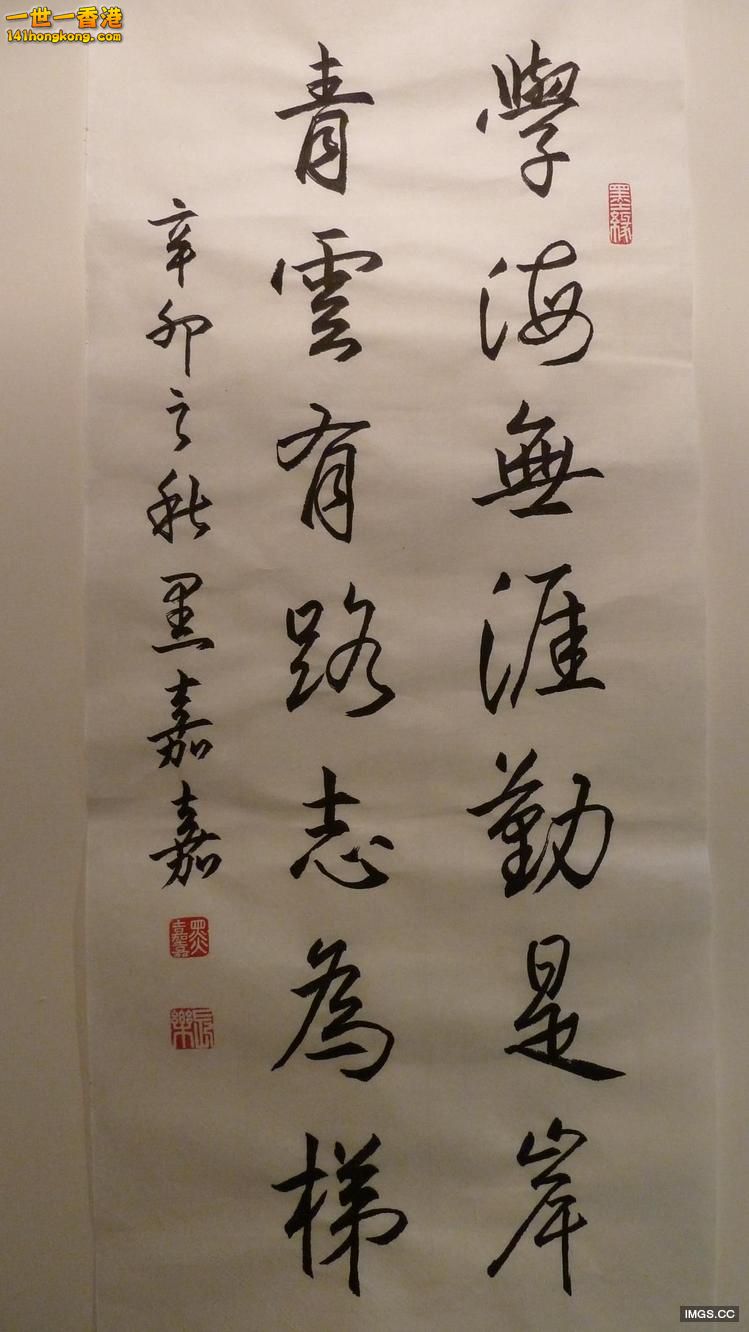 一世一香港
141hongkong.com
學海無涯勤是岸
青雲有路志為梯
辛卯之秋黑嘉嘉
墨緣
黑嘉嘉
長樂
IMGS.CC